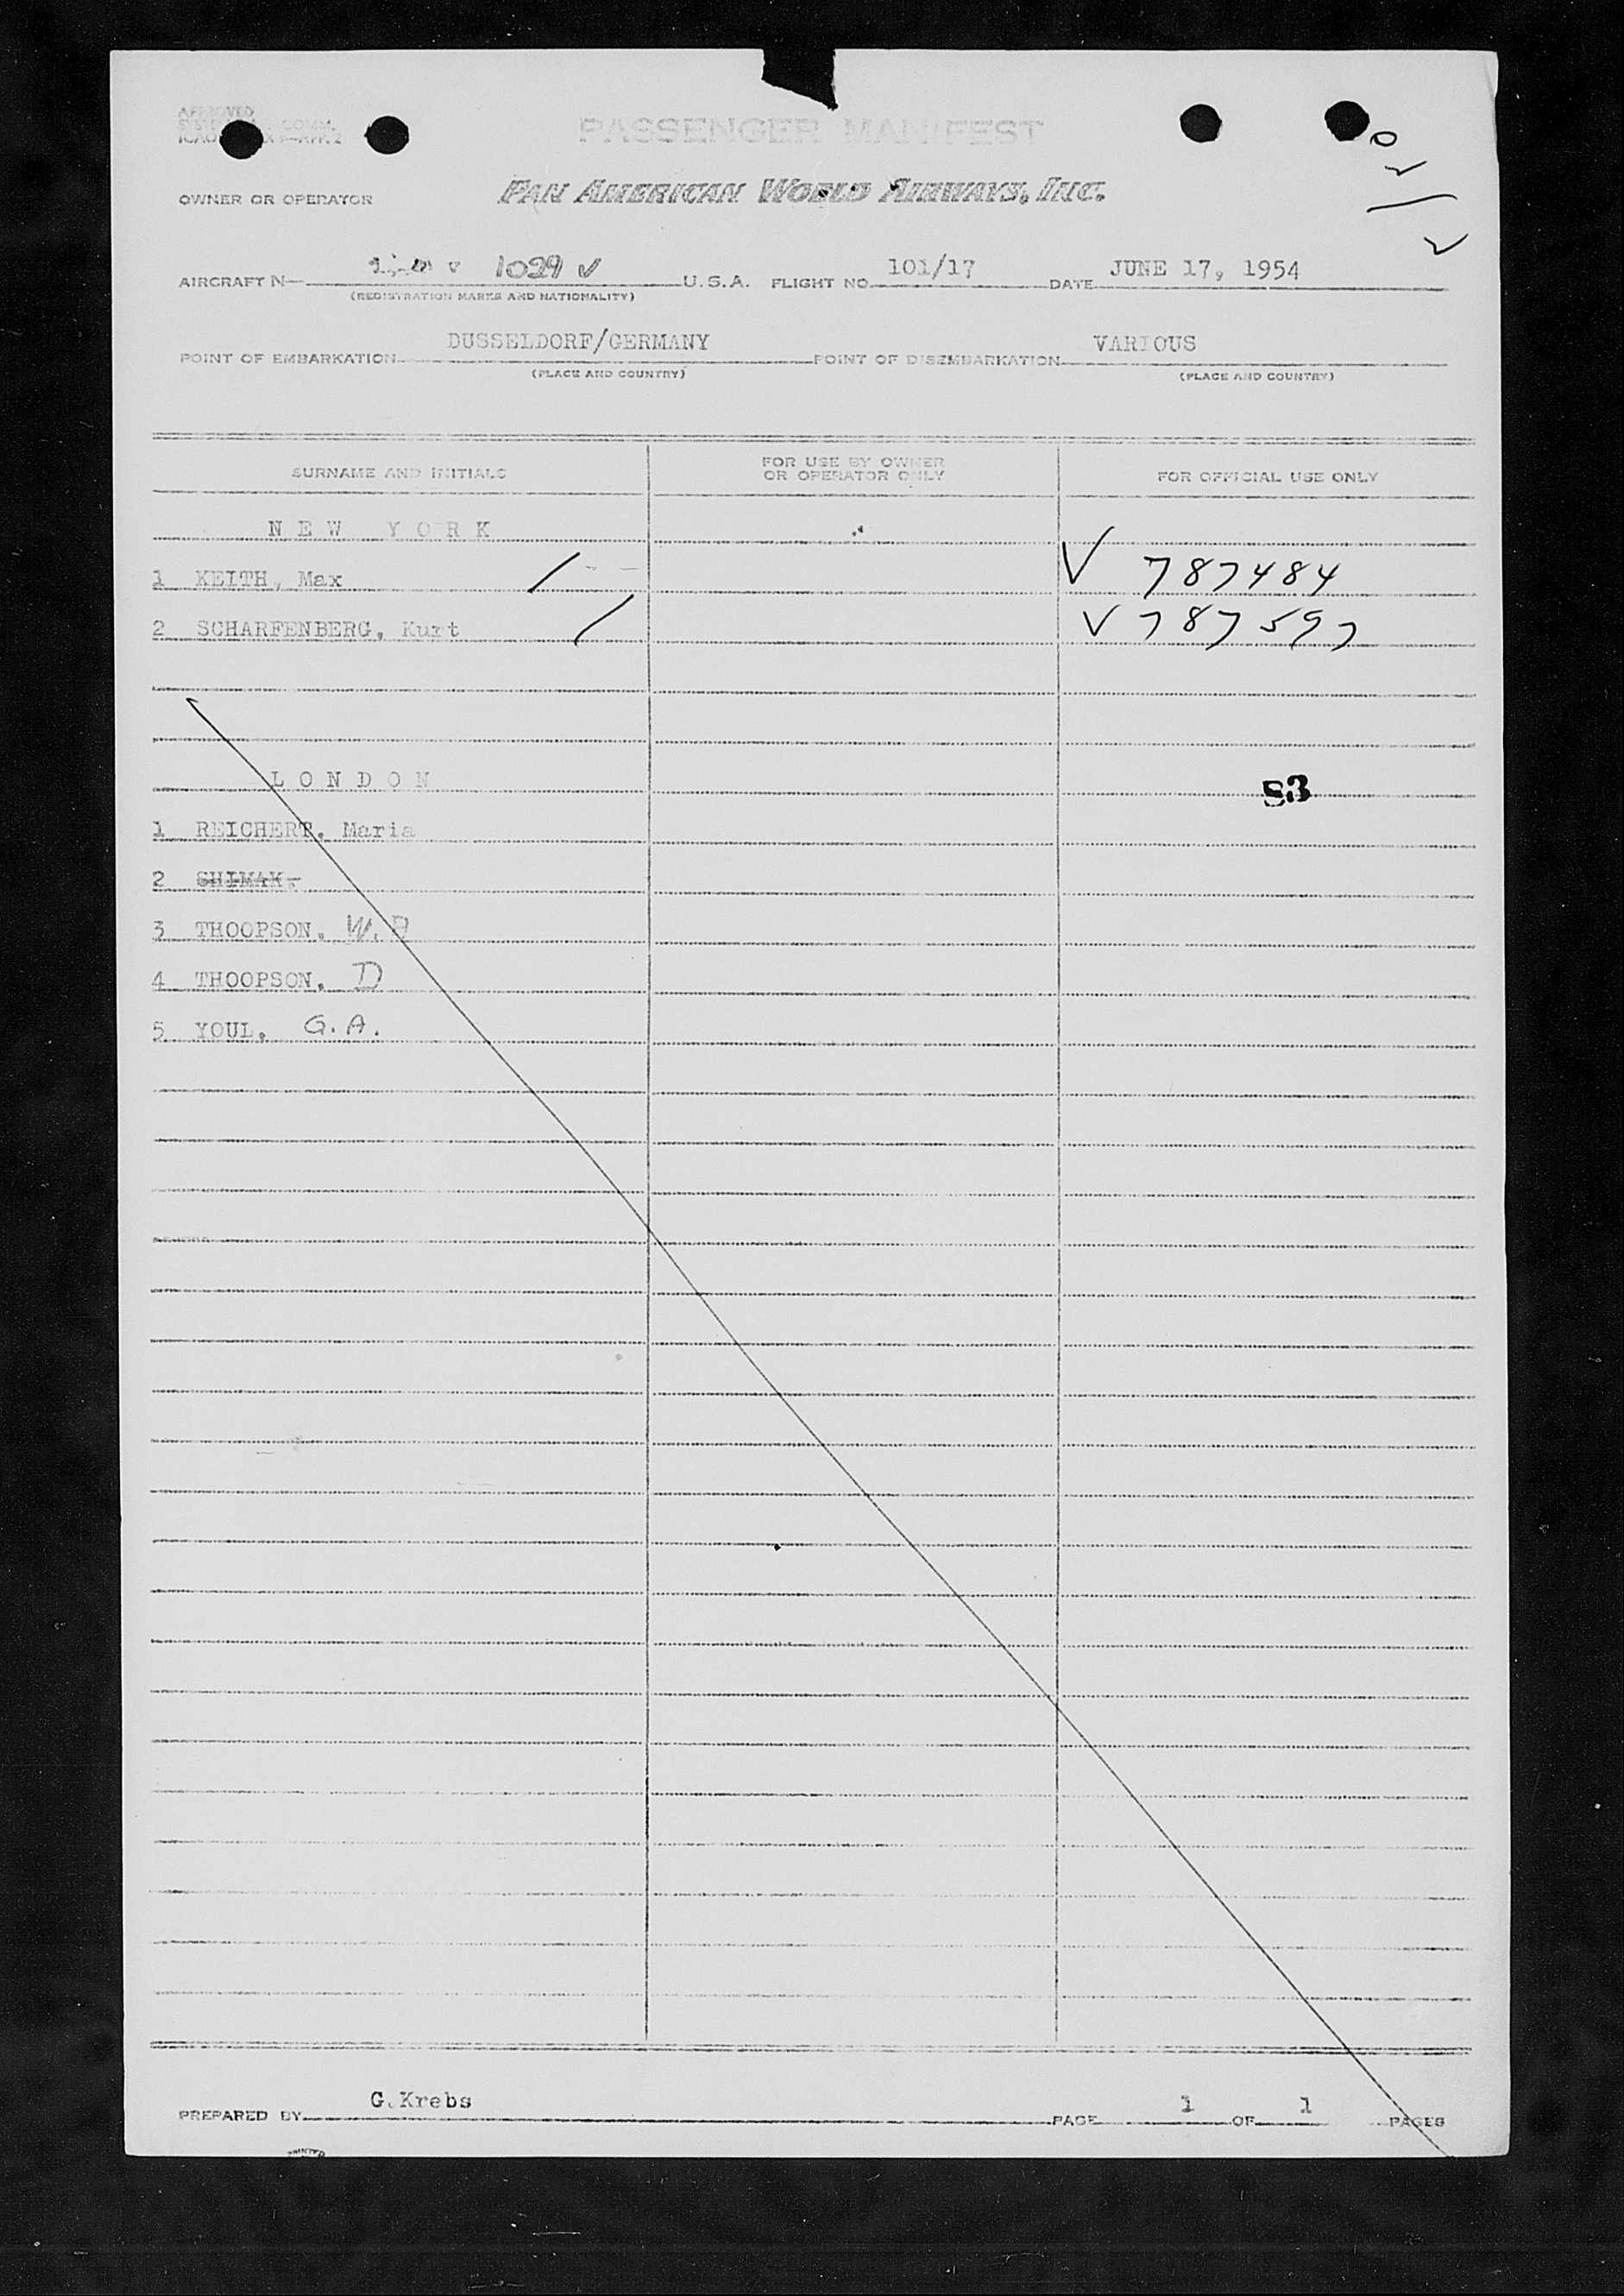 APPROVED
COMM.
ICAO APP. 2
PASSENGER MANIFEST
OWNER OR OPERATOR PAN AMERICAN WORLD AIRWAYS, INC.
AIRCRAFT N— 1029 U.S.A. FLIGHT NO. 101/17 DATE JUNE 17, 1954
(REGISTRATION MARKS AND NATIONALITY)
POINT OF EMBARKATION DUSSELDORF/GERMANY POINT OF DISEMBARKATION VARIOUS
(PLACE AND COUNTRY) (PLACE AND COUNTRY)
SURNAME AND INITIALS FOR USE BY OWNER OR OPERATOR ONLY FOR OFFICIAL USE ONLY
N E W Y O R K
1 KEITH, Max 787484
2 SCHARFENBERG, Kurt 787597
L O N D O N S3
1 REICHERT, Maria
2 SHIMAK.
3 THOOPSON. W.
4 THOOPSON. D
5 YOUL. G.A.
PREPARED BY G.Krebs PAGE 1 OF 1 PAGES
PRINTED